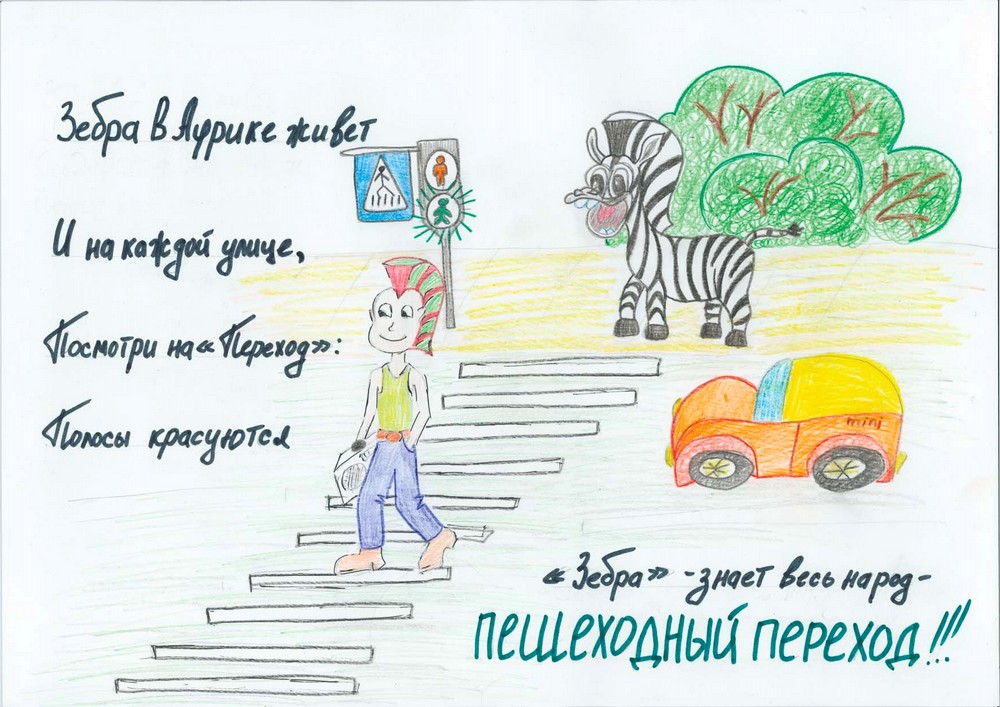 Зебра в Африке живет
И на каждой улице,
Посмотри на «Переход»:
Полосы красуются
mini
«Зебра» - знает весь народ -
ПЕШЕХОДНЫЙ ПЕРЕХОД!!!